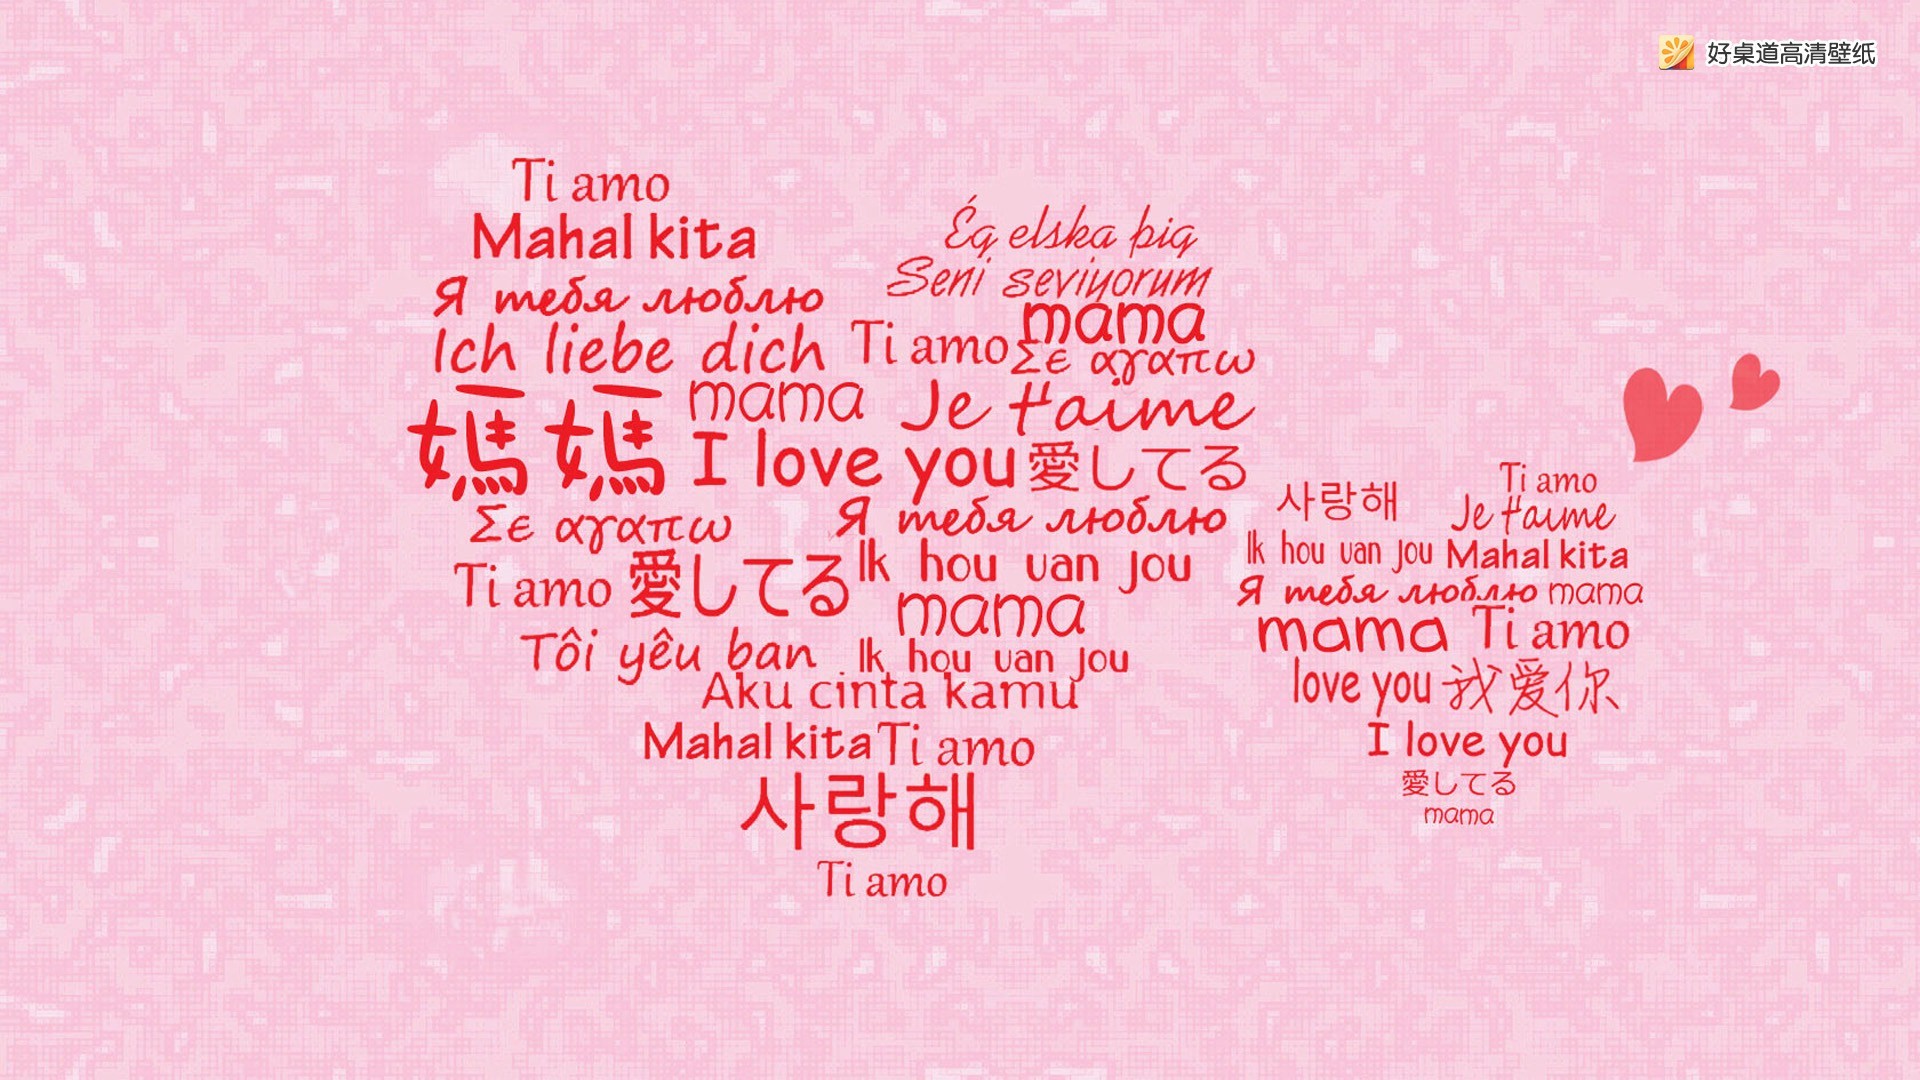 好桌道高清壁纸
Ti amo
Mahal kita
Я тебя люблю
Ich liebe dich
媽媽
Σε αγαπω
Ti amo 愛してる
Tôi yêu ban
Ég elska þig
Seni seviyorum
Ti amo mama
Σε αγαπω
mama Je t'aime
I love you 愛してる
Я тебя люблю
Ik hou van jou
mama
Ik hou van jou
Aku cinta kamu
Mahal kita Ti amo
사랑해
Ti amo
사랑해 Ti amo
Je t'aime
Ik hou van jou Mahal kita
Я тебя люблю mama
mama Ti amo
love you 我爱你
I love you
愛してる
mama